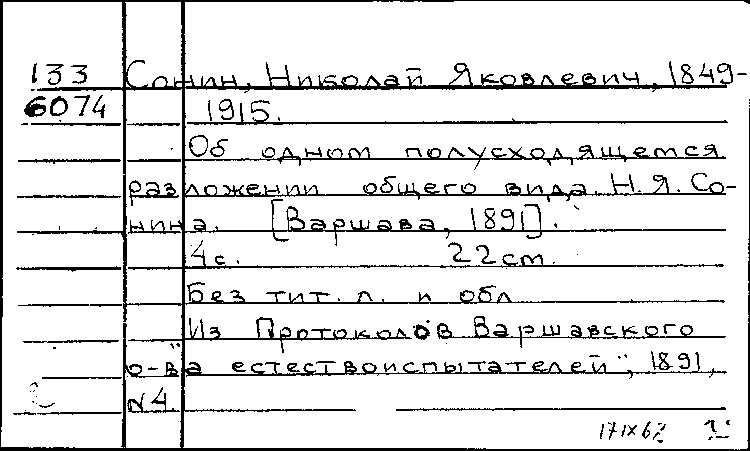 133 Сонин, Николай Яковлевич, 1849-
6074 1915.
Об одном полусходящемся
разложении общего вида. Н. Я. Со-
нина. [Варшава, 1891].
4с. 22 cm.
Без тит. л. и обл
Из Протоколов Варшавского
о-ва естествоиспытателей", 1891,
N 4.